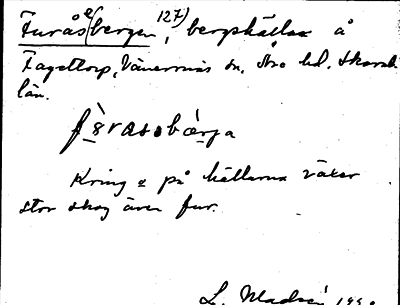 Furåsebergen 127), bergshällar å
Fagettorp, Vänersnäs sn, Åse hd. Skarab.
län.
Kring o på hällarna växer
stor skog även fur.
L. Madsén